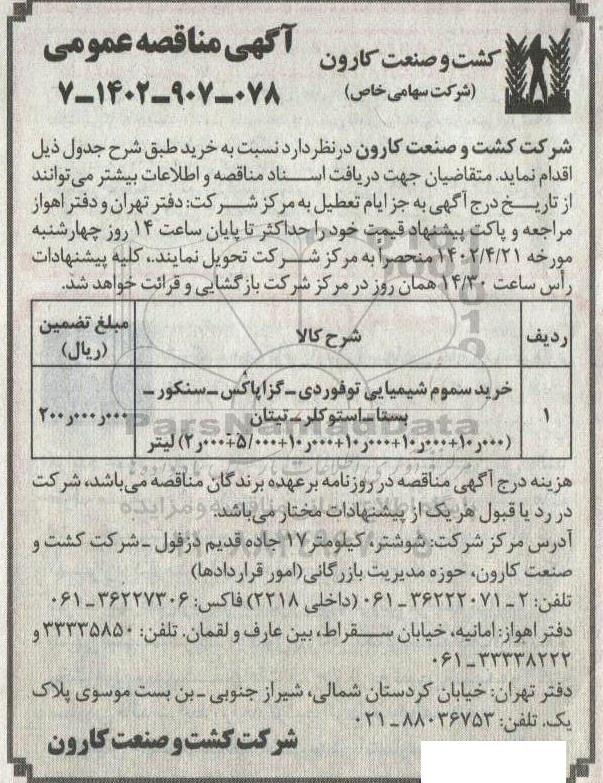 آگهی مناقصه عمومی
۷-۱۴۰۲-۹۰۷-۰۷۸
کشت و صنعت کارون
(شرکت سهامی خاص)
شرکت کشت و صنعت کارون در نظر دارد نسبت به خرید طبق شرح جدول ذیل
اقدام نماید. متقاضیان جهت دریافت اسناد مناقصه و اطلاعات بیشتر می‌توانند
از تاریخ درج آگهی به جز ایام تعطیل به مرکز شرکت: دفتر تهران و دفتر اهواز
مراجعه و پاکت پیشنهاد قیمت خود را حداکثر تا پایان ساعت ۱۴ روز چهارشنبه
مورخه ۱۴۰۲/۴/۲۱ منحصراً به مرکز شرکت تحویل نمایند.، کلیه پیشنهادات
رأس ساعت ۱۴/۳۰ همان روز در مرکز شرکت بازگشایی و قرائت خواهد شد.
ردیف
شرح کالا
مبلغ تضمین
(ریال)
۱
خرید سموم شیمیایی توفوردی-گزاپاکس-سنکور-
بستا-استوکلر-تیتان
(۱۰ر۰۰۰+۱۰ر۰۰۰+۱۰ر۰۰۰+۱۰ر۰۰۰+۵/۰۰۰+۲ر۰۰۰) لیتر
۲۰۰ر۰۰۰ر۰۰۰
ParsNamadData
هزینه درج آگهی مناقصه در روزنامه بر عهده برندگان مناقصه می‌باشد، شرکت
در رد یا قبول هر یک از پیشنهادات مختار می‌باشد.
آدرس مرکز شرکت: شوشتر، کیلومتر ۱۷ جاده قدیم دزفول - شرکت کشت و
صنعت کارون، حوزه مدیریت بازرگانی (امور قراردادها)
تلفن: ۲-۳۶۲۲۲۰۷۱-۰۶۱ (داخلی ۲۲۱۸) فاکس: ۳۶۲۲۷۳۰۶-۰۶۱
دفتر اهواز: امانیه، خیابان سقراط، بین عارف و لقمان. تلفن: ۳۳۳۳۵۸۵۰ و
۳۳۳۳۸۲۲۲-۰۶۱
دفتر تهران: خیابان کردستان شمالی، شیراز جنوبی - بن بست موسوی پلاک
یک. تلفن: ۸۸۰۳۶۷۵۳-۰۲۱
شرکت کشت و صنعت کارون